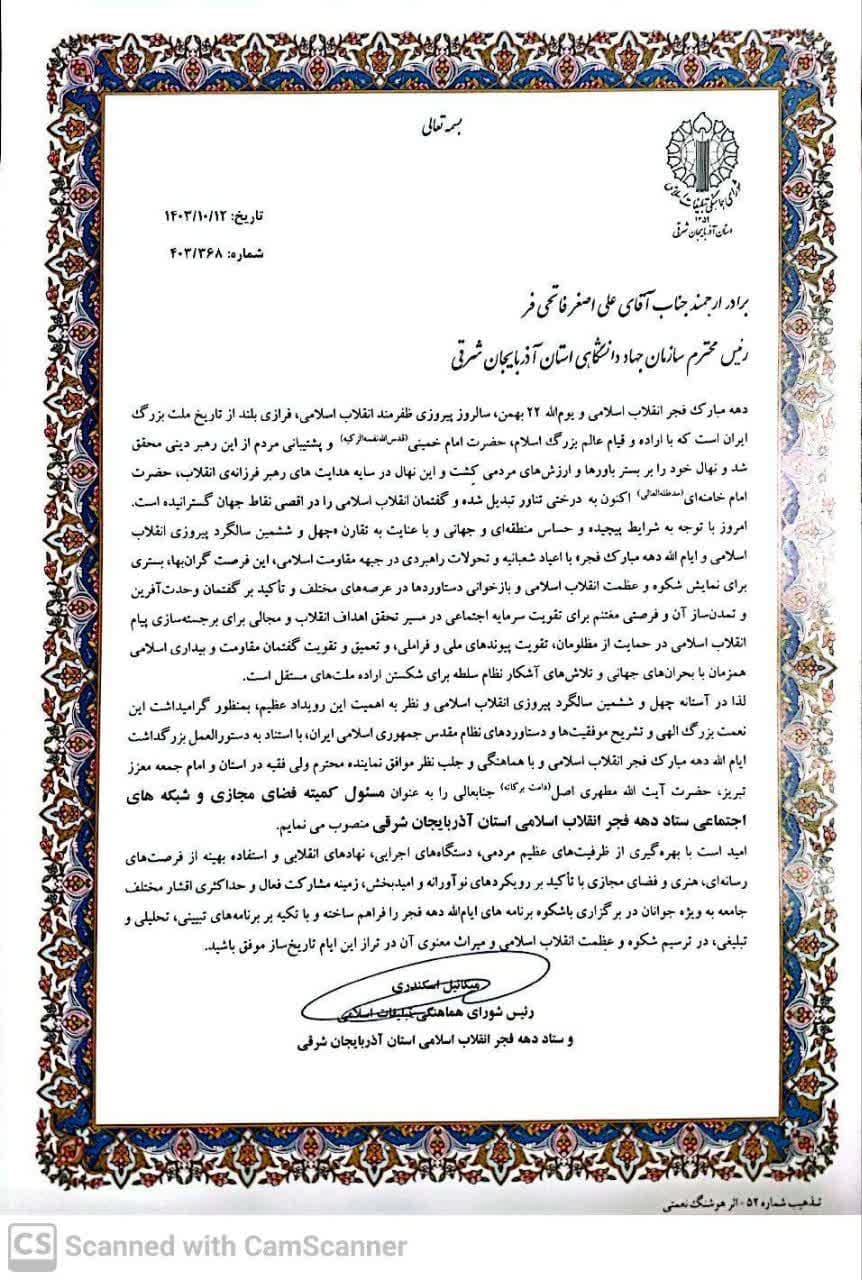 بسمه تعالی
شورای هماهنگی تبلیغات اسلامی
۱۳۵۹
استان آذربایجان شرقی
تاریخ: ۱۴۰۳/۱۰/۱۲
شماره: ۴۰۳/۳۶۸
برادر ارجمند جناب آقای علی اصغر فاتحی فر
رئیس محترم سازمان جهاد دانشگاهی استان آذربایجان شرقی
دهه مبارک فجر انقلاب اسلامی و یوم‌الله ۲۲ بهمن، سالروز پیروزی ظفرمند انقلاب اسلامی، فرازی بلند از تاریخ ملت بزرگ
ایران است که با اراده و قیام عالم بزرگ اسلام، حضرت امام خمینی(قدس‌الله‌نفسه‌الزکیه) و پشتیبانی مردم از این رهبر دینی محقق
شد و نهال خود را بر بستر باورها و ارزش‌های مردمی کِشت و این نهال در سایه هدایت های رهبر فرزانه‌ی انقلاب، حضرت
امام خامنه‌ای(مدظله‌العالی) اکنون به درختی تناور تبدیل شده و گفتمان انقلاب اسلامی را در اقصی نقاط جهان گسترانیده است.
امروز با توجه به شرایط پیچیده و حساس منطقه‌ای و جهانی و با عنایت به تقارن «چهل و ششمین سالگرد پیروزی انقلاب
اسلامی و ایام الله دهه مبارک فجر» با اعیاد شعبانیه و تحولات راهبردی در جبهه مقاومت اسلامی، این فرصت گران‌بها، بستری
برای نمایش شکوه و عظمت انقلاب اسلامی و بازخوانی دستاوردها در عرصه‌های مختلف و تأکید بر گفتمان وحدت‌آفرین
و تمدن‌ساز آن و فرصتی مغتنم برای تقویت سرمایه اجتماعی در مسیر تحقق اهداف انقلاب و مجالی برای برجسته‌سازی پیام
انقلاب اسلامی در حمایت از مظلومان، تقویت پیوندهای ملی و فراملی، و تعمیق و تقویت گفتمان مقاومت و بیداری اسلامی
همزمان با بحران‌های جهانی و تلاش‌های آشکار نظام سلطه برای شکستن اراده ملت‌های مستقل است.
لذا در آستانه چهل و ششمین سالگرد پیروزی انقلاب اسلامی و نظر به اهمیت این رویداد عظیم، بمنظور گرامیداشت این
نعمت بزرگ الهی و تشریح موفقیت‌ها و دستاوردهای نظام مقدس جمهوری اسلامی ایران، با استناد به دستورالعمل بزرگداشت
ایام الله دهه مبارک فجر انقلاب اسلامی و با هماهنگی و جلب نظر موافق نماینده محترم ولی فقیه در استان و امام جمعه معزز
تبریز، حضرت آیت الله مطهری اصل(دامت برکاته) جنابعالی را به عنوان مسئول کمیته فضای مجازی و شبکه های
اجتماعی ستاد دهه فجر انقلاب اسلامی استان آذربایجان شرقی منصوب می نمایم.
امید است با بهره‌گیری از ظرفیت‌های عظیم مردمی، دستگاه‌های اجرایی، نهادهای انقلابی و استفاده بهینه از فرصت‌های
رسانه‌ای، هنری و فضای مجازی با تأکید بر رویکردهای نوآورانه و امیدبخش، زمینه مشارکت فعال و حداکثری اقشار مختلف
جامعه به ویژه جوانان در برگزاری باشکوه برنامه های ایام‌الله دهه فجر را فراهم ساخته و با تکیه بر برنامه‌های تبیینی، تحلیلی و
تبلیغی، در ترسیم شکوه و عظمت انقلاب اسلامی و میراث معنوی آن در تراز این ایام تاریخ‌ساز موفق باشید.
میکائیل اسکندری
رئیس شورای هماهنگی تبلیغات اسلامی
و ستاد دهه فجر انقلاب اسلامی استان آذربایجان شرقی
تذهیب شماره ۵۲ - اثر هوشنگ نعمتی
CS Scanned with CamScanner